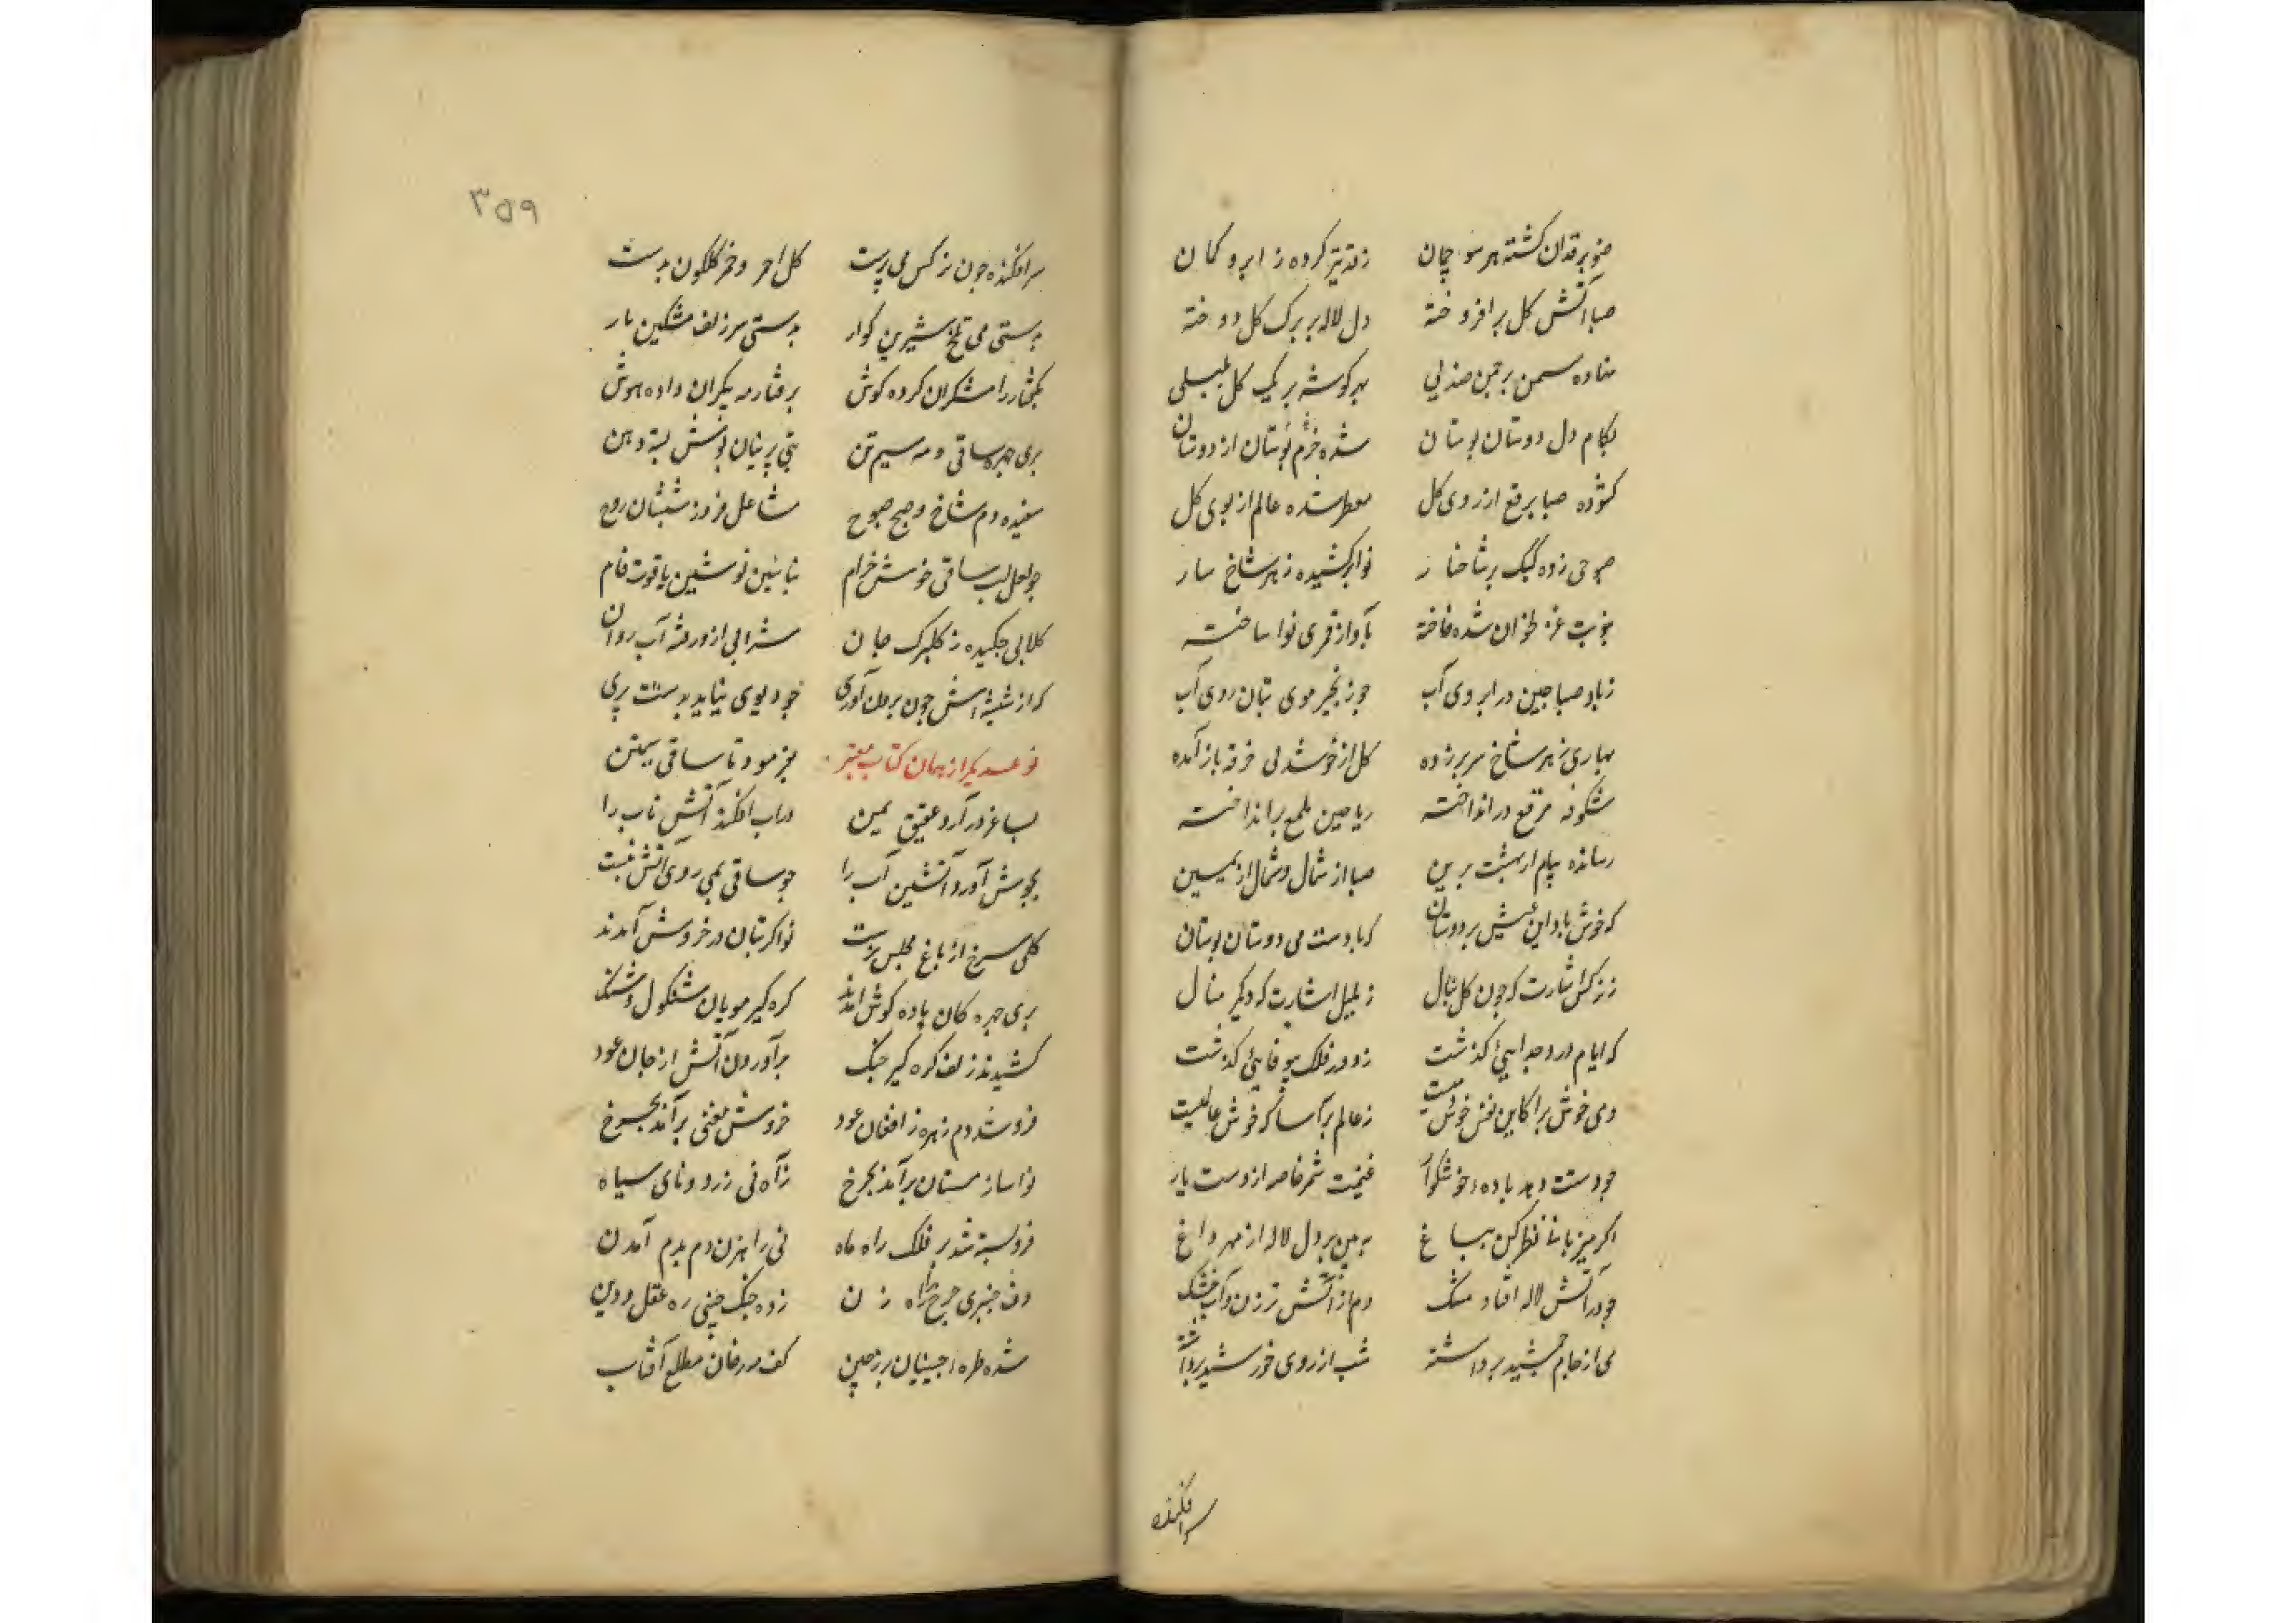 صنوبر قدان کشته هر سو چمان زقد تیر کرده ز ابرو کمان
صبا آتش کل بر افروخته دل لاله بر برک کل دوخته
نهاده سمن بر چمن صندلی بهر کوشه بر یک کل بلبلی
بکام دل دوستان بوستان شده خرم بوستان از دوستان
کشوده صبا برقع از روی کل معطر شده عالم از بوی کل
صبوحی زده کبک بر شاخسار نوا برکشیده ز هر شاخ سار
شده فاخته بآواز قمری نوا ساخته
زباد صبا چین در ابروی آب چو زنجیر موی بتان روی آب
بهاری ز هر شاخ سر بر زده کل از خوشدلی خرقه باز آمده
شکوفه مرقع در انداخته ریاحین ملمع بر انداخته
رسانده پیام از بهشت برین صبا از شمال و شمال از یمین
که خوش باد این عیش بر دوستان که با دوست می دوستان بوستان
ز نرکس اشارت که چون کل ببال ز بلبل اشارت که دیکر منال
که ایام درد جدایی کذشت ز دور فلک بیوفایی کذشت
دمی خوش برا کاین نفس خوش دمیست ز عالم برآسا که خوش عالمیست
چو دستت دهد باده خوشکوار غنیمت شمر خاصه از دست یار
اکر میزبانی نظر کن بباغ ببین بر دل لاله از مهر داغ
چو در آتش لاله افتاد مشک دم از آتش تر زن و آب خشک
می از جام جمشید برداشته شب از روی خورشید برداشته
سرافکنده
۳۵۹
سرافکنده چون نرکس می پرست کل احمر و خمر کلکون بدست
بدستی می تلخ شیرین کوار بدستی سر زلف مشکین یار
بکفتار رامشکران کرده کوش برفتار مه پیکران داده هوش
پری چهره ساقی و مه سیم تن بتی پرنیان پوش بسته دهن
سفیده دم شاخ و صبح صبوح مشاعل فروز شبستان روح
چو لعل لب ساقی خوش خرام نوشین یاقوت فام
کلابی چکیده ز کلبرک جان شرابی ازو رفته آب روان
که از شیشه اش چون برون آوری چو دیوی نیاید بدستت پری
نوع دیکر از همان کتاب معتبر بفرمود تا ساقی سیمتن
بساغر در آرد عقیق یمن در آب افکند آتش ناب را
بجوش آورد آتشین آب را چو ساقی بمی روی آتش بشست
کلی سرخ از باغ مجلس برست نواکر بتان در خروش آمدند
پری چهره کان باده کوش آمدند کره کیر مویان شنکول و شنک
کشیدند زلف کره کیر چنک برآورد آن آتش از جان عود
فرو شد دم زهره ز افغان عود خروش مغنی برآمد بچرخ
نواساز مستان برآمد بچرخ ز آه نی زرد و نای سیاه
فرو بسته شد بر فلک راه ماه نی راهزن دم بدم آمدن
دف چنبری چرخ را راه زن زده چنک چینی ره عقل و دین
شده طره اجبینان بر زمین کف مه رخان مطلع آفتاب